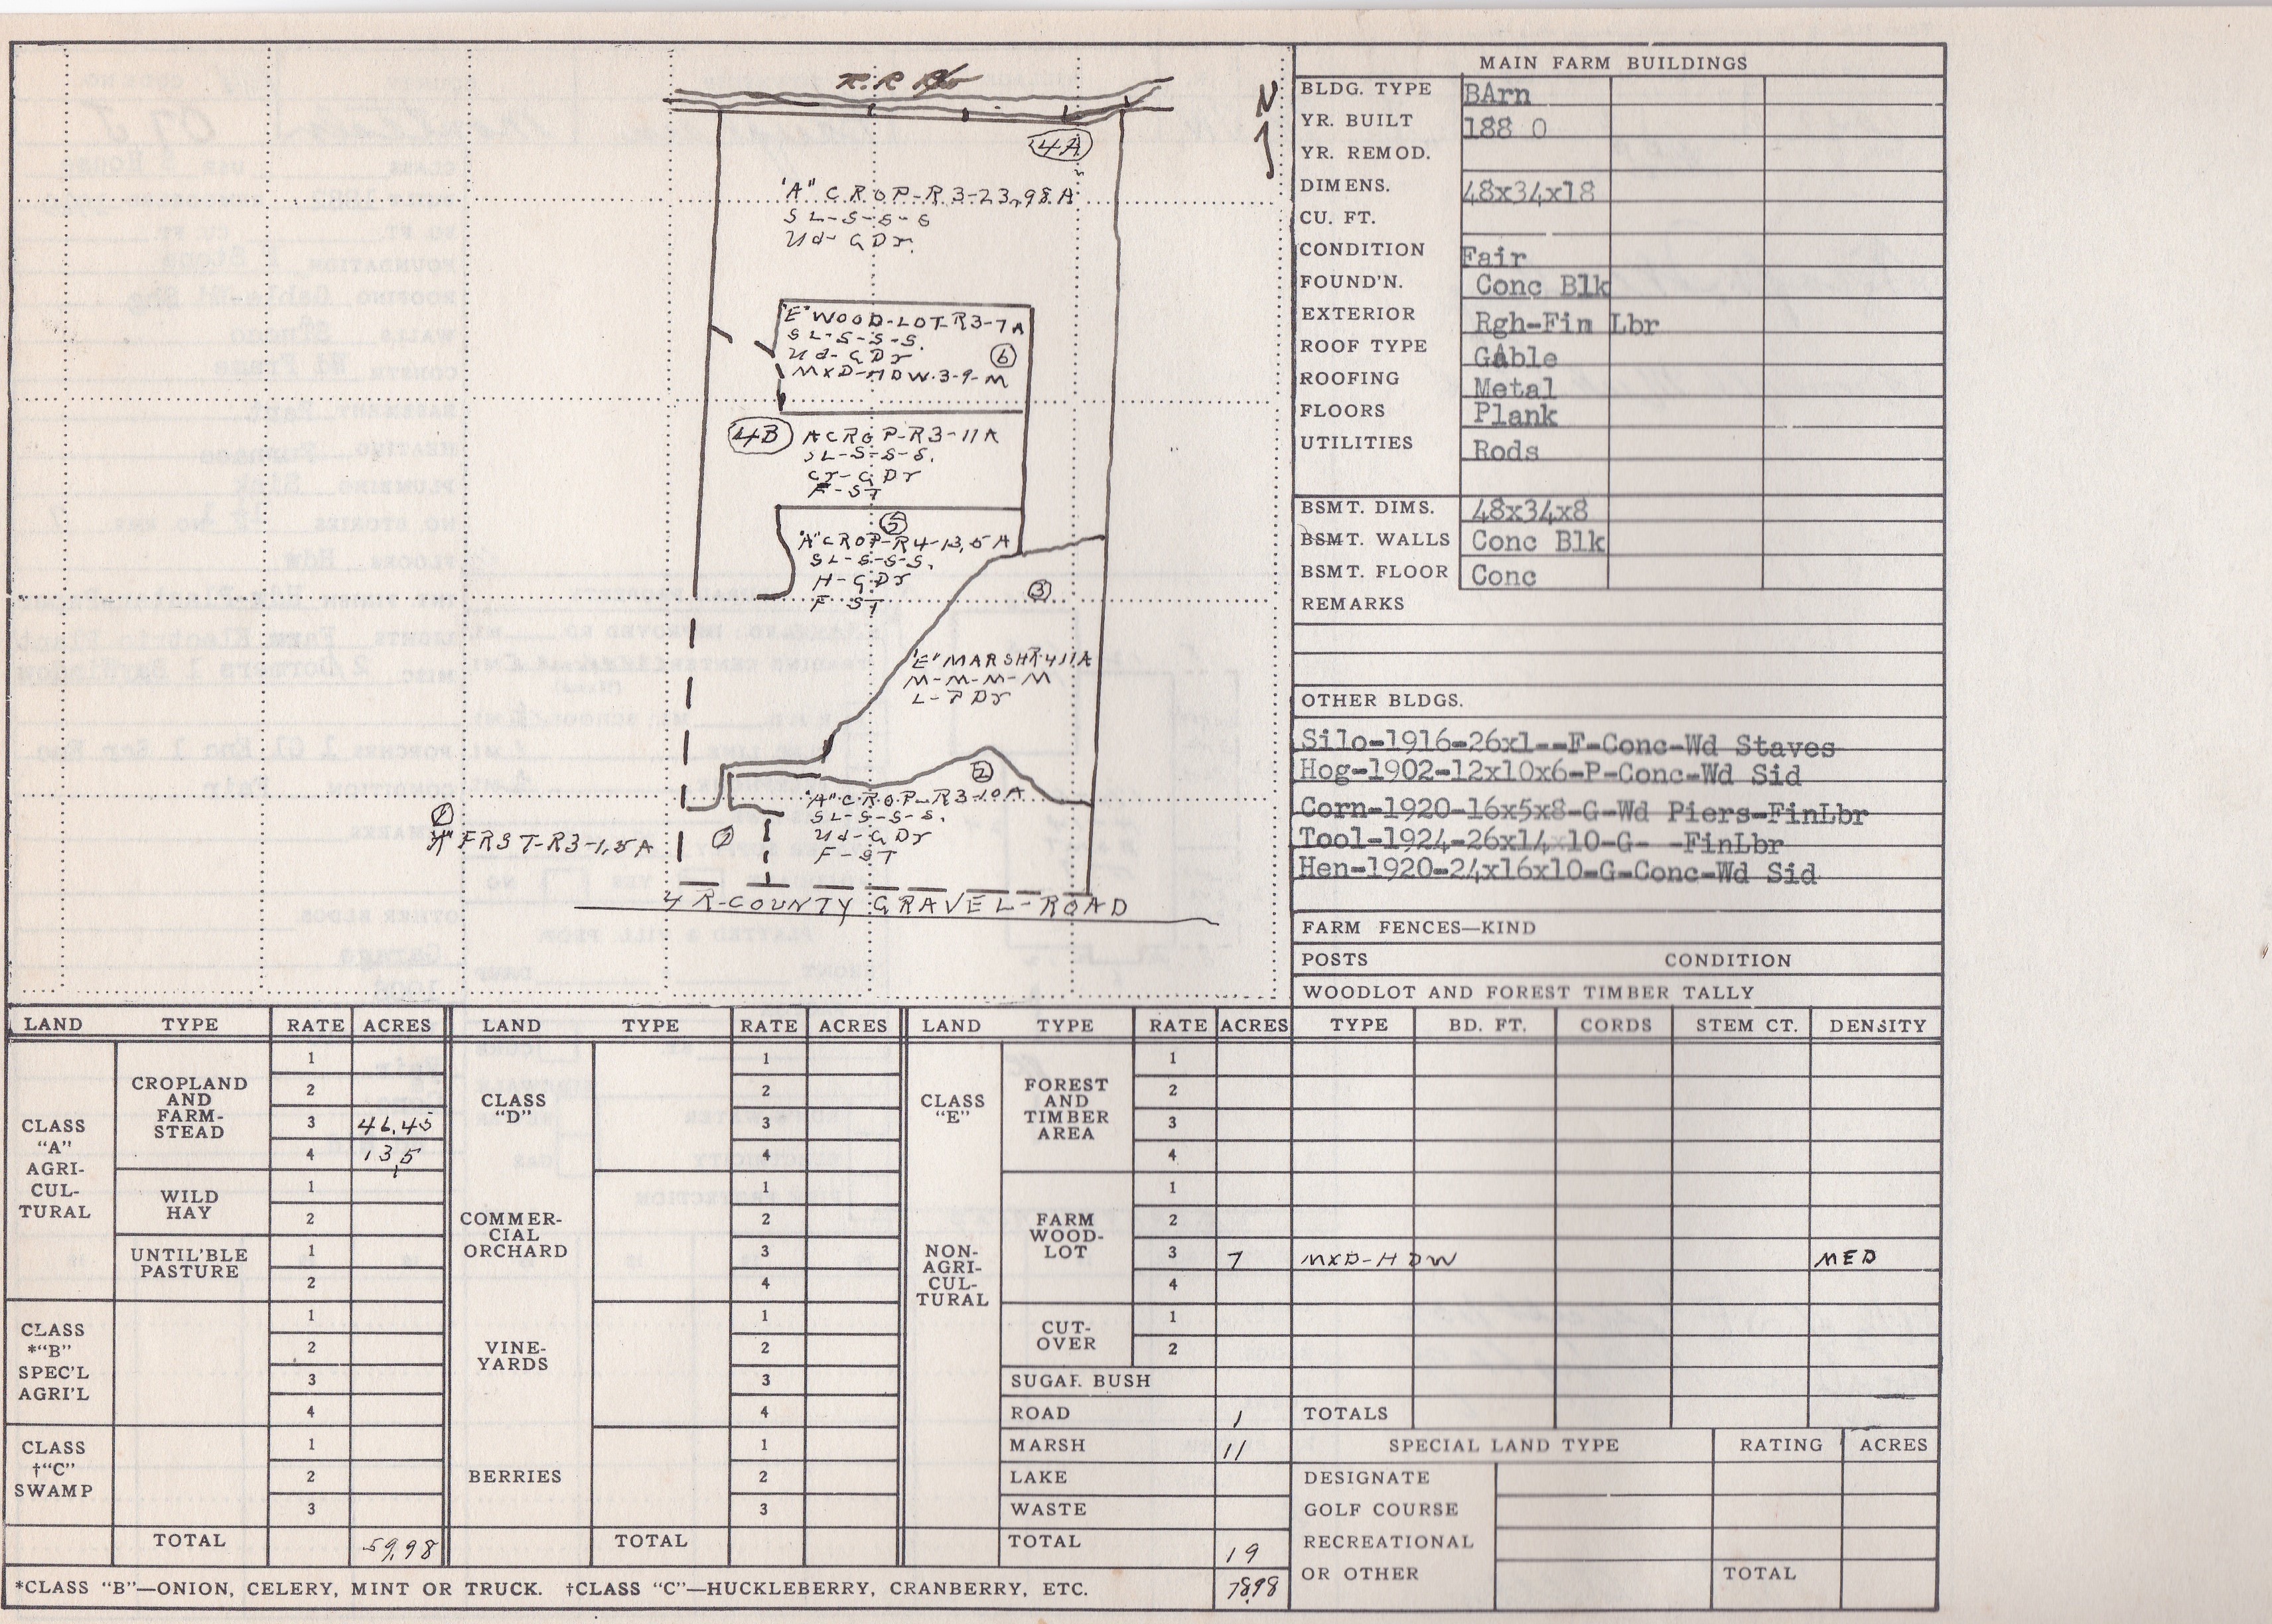 R.R
N
4A
"A" CROP-R3-23.98A
SL-S-S-S
Ud-GDr.
"E" WOOD-LOT-R3-7A
SL-S-S-S.
Ud-GDr
6
MXD-HDW.3-9-M
4B
A CROP-R3-11A
SL-S-S-S.
Cr-GDr
F-ST
5
"A" CROP-R4-13,5A
SL-S-S-S.
H-GDr
F ST
3
"E" MARSH R411A
M-M-M-M
L-PDr
2
"A" CROP-R3-10A
SL-S-S-S.
Ud-GDr
F-ST
1
"A" FRST-R3-1,5A
1
4 R-COUNTY GRAVEL-ROAD
MAIN FARM BUILDINGS
BLDG. TYPE BArn
YR. BUILT 188 0
YR. REMOD.
DIMENS. 48x34x18
CU. FT.
CONDITION Fair
FOUND'N. Conc Blk
EXTERIOR Rgh-Fin Lbr
ROOF TYPE GAble
ROOFING Metal
FLOORS Plank
UTILITIES Rods
BSMT. DIMS. 48x34x8
BSMT. WALLS Conc Blk
BSMT. FLOOR Conc
REMARKS
OTHER BLDGS.
Silo-1916-26x1--F-Conc-Wd Staves
Hog-1902-12x10x6-P-Conc-Wd Sid
Corn-1920-16x5x8-G-Wd Piers-FinLbr
Tool-1924-26x14x10-G- -FinLbr
Hen-1920-24x16x10-G-Conc-Wd Sid
FARM FENCES—KIND
POSTS CONDITION
WOODLOT AND FOREST TIMBER TALLY
LAND TYPE RATE ACRES LAND TYPE RATE ACRES LAND TYPE RATE ACRES TYPE BD. FT. CORDS STEM CT. DENSITY
CLASS "A" AGRI-CUL-TURAL
CROPLAND AND FARM-STEAD
1
2
3 46.45
4 13,5
WILD HAY
1
2
UNTIL'BLE PASTURE
1
2
CLASS *"B" SPEC'L AGRI'L
1
2
3
4
CLASS †"C" SWAMP
1
2
3
TOTAL 59.98
CLASS "D"
1
2
3
4
COMMER-CIAL ORCHARD
1
2
3
4
VINE-YARDS
1
2
3
4
BERRIES
1
2
3
TOTAL
CLASS "E"
NON-AGRI-CUL-TURAL
FOREST AND TIMBER AREA
1
2
3
4
FARM WOOD-LOT
1
2
3 7 MXD-HDW MED
4
CUT-OVER
1
2
SUGAR BUSH
ROAD 1 TOTALS
MARSH 11
LAKE
WASTE
TOTAL 19
SPECIAL LAND TYPE RATING ACRES
DESIGNATE
GOLF COURSE
RECREATIONAL
OR OTHER TOTAL
*CLASS "B"—ONION, CELERY, MINT OR TRUCK. †CLASS "C"—HUCKLEBERRY, CRANBERRY, ETC. 78.98